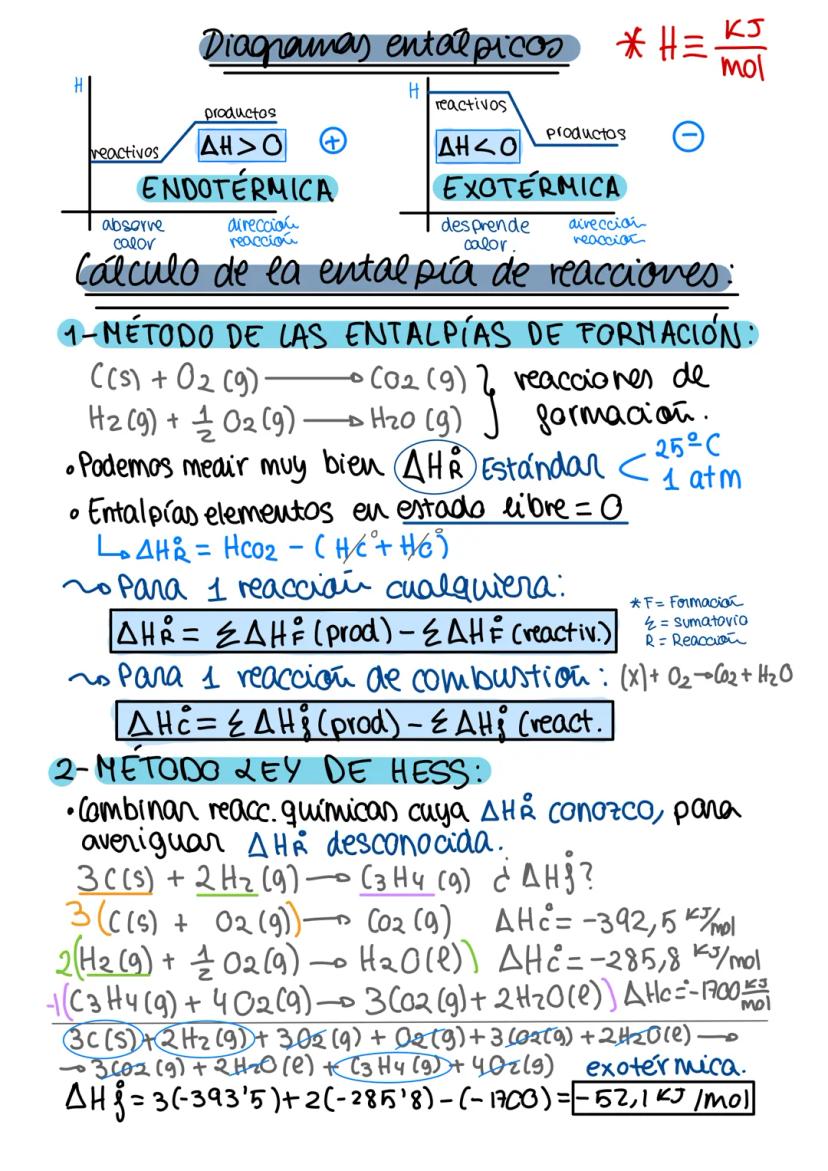 Diagramas entálpicos * H ≡ KJ/mol
H
reactivos
productos
ΔH > 0 +
ENDOTÉRMICA
absorve calor
dirección reacción
H
reactivos
productos
ΔH < 0 −
EXOTÉRMICA
desprende calor.
dirección reacción
Cálculo de la entalpía de reacciones:
1-MÉTODO DE LAS ENTALPÍAS DE FORMACIÓN:
C(s) + O2 (g) → CO2 (g) } reacciones de
H2(g) + 1/2 O2(g) → H2O (g) } formación.
• Podemos medir muy bien ΔH°R Estándar < 25°C
1 atm
• Entalpías elementos en estado libre = 0
↳ ΔH°R = HCO2 − ( H°C + H°C )
~> Para 1 reacción cualquiera:
ΔH°R = Σ ΔH°F (prod) − Σ ΔH°F (reactiv.)
* F = Formación
Σ = sumatorio
R = Reacción
~> Para 1 reacción de combustión: (X) + O2 → CO2 + H2O
ΔH°C = Σ ΔH°f (prod) − Σ ΔH°f (react.
2-MÉTODO LEY DE HESS:
• Combinar reacc. químicas cuya ΔH°R conozco, para
averiguar ΔH°R desconocida.
3C(s) + 2H2(g) → C3H4 (g) ¿ ΔH°f?
3(C(s) + O2(g)) → CO2(g) ΔH°C = −392,5 KJ/mol
2(H2(g) + 1/2 O2(g) → H2O(l)) ΔH°C = −285,8 KJ/mol
-1(C3H4(g) + 4O2(g) → 3CO2(g) + 2H2O(l)) ΔHC° = −1700 KJ/mol
3C(s) + 2H2(g) + 3O2(g) + O2(g) + 3CO2(g) + 2H2O(l) →
→ 3CO2(g) + 2H2O(l) + C3H4(g) + 4O2(g) exotérmica.
ΔH°f = 3(−393'5) + 2(−285'8) − (−1700) = −52,1 KJ/mol